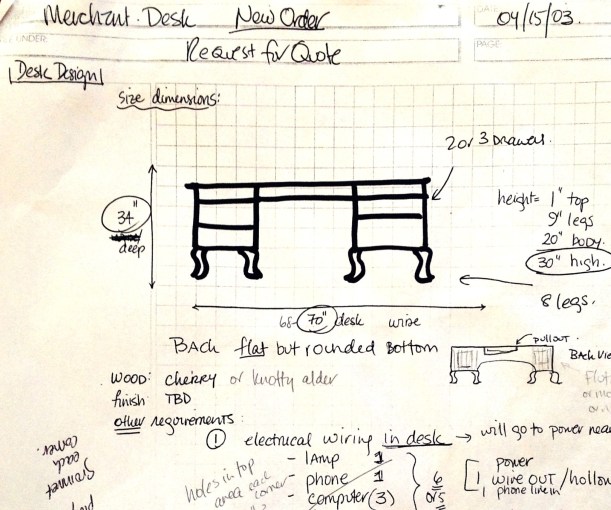 Merchant Desk New Order
DATE 04/15/03.
UNDER:
PAGE:
Request for Quote
Desk Design
size dimensions:
2 or 3 Drawers.
height= 1" top
9" legs
20" body.
30" high.
34"
deep
8 legs.
68- 70" desk wise
BACK flat but rounded Bottom
pullout.
BACK Vie
WOOD: cherry or knotty alder
finish: TBD
other requirements:
① electrical wiring in desk → will go to power near
- lamp 1
- phone 1
- computer (3)
6
or 5
power
1 wire out / hollow
1 phone line in
holes in top
area each
corner
grommet
each
corner.